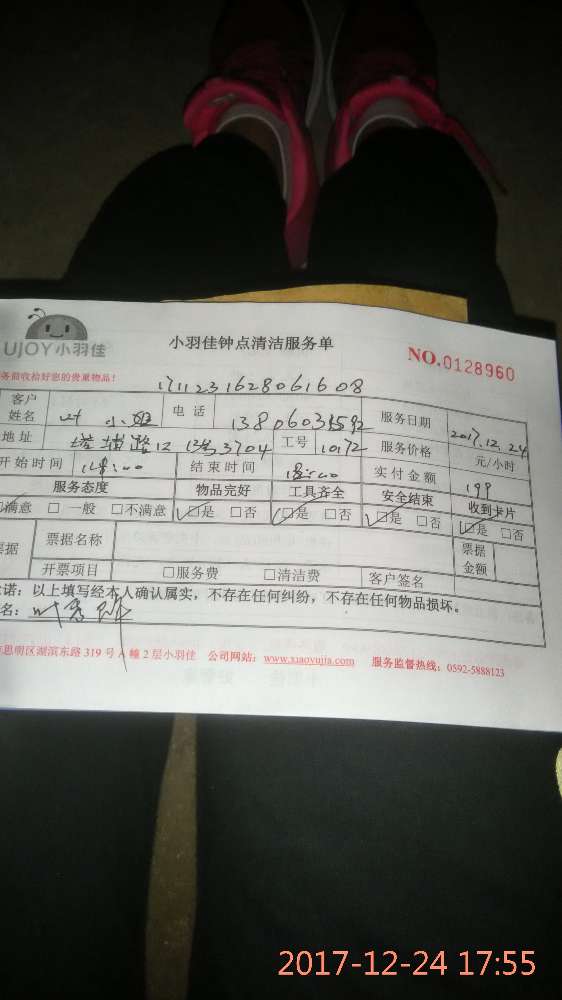 UjOY小羽佳
小羽佳钟点清洁服务单
NO.0128960
务前收拾好您的贵重物品!
1711231628061608
客户姓名 叶小姐 电话 服务日期 2017.12.24
地址 塔埔路12 3704 工号 10172 服务价格 元/小时
开始时间 结束时间 实付金额 199
服务态度 物品完好 工具齐全 安全结束 收到卡片
□满意 □一般 □不满意 □是 □否 □是 □否 □是 □否 □是 □否
票据 票据名称 票据金额
开票项目 □服务费 □清洁费 客户签名
诺:以上填写经本人确认属实,不存在任何纠纷,不存在任何物品损坏。
名:叶
思明区湖滨东路 319 号 A 幢 2 层小羽佳 公司网站:www.xiaoyujia.com 服务监督热线:0592-5888123
2017-12-24 17:55